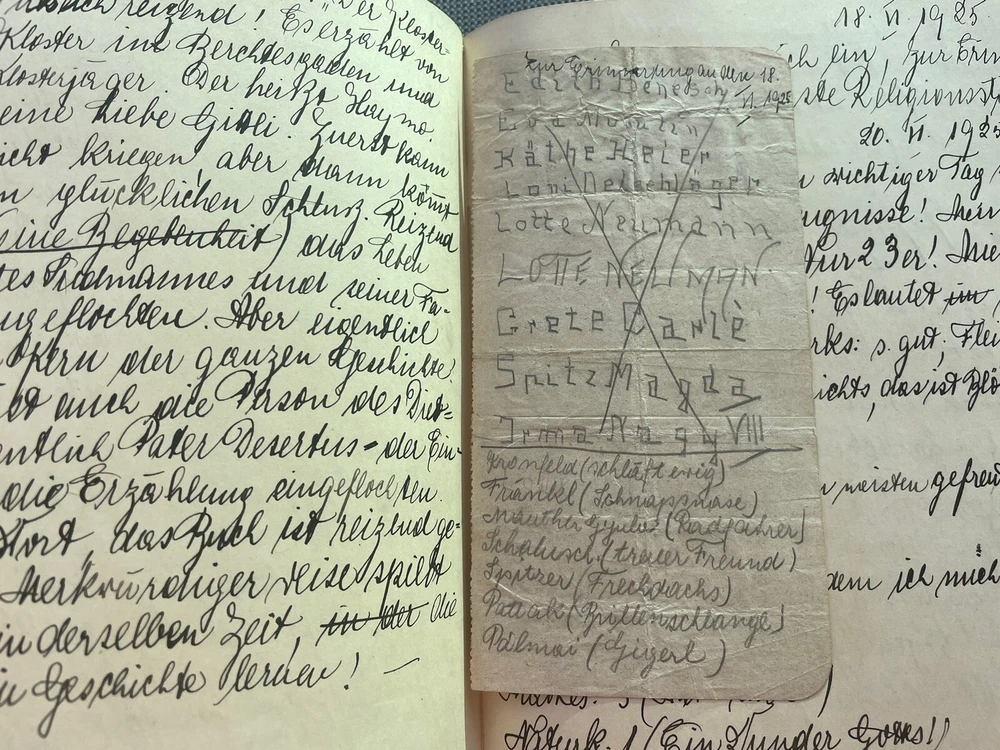 reizend! Es erzählt von
Kloster in Berchtesgaden und
Klosterjäger. Der hertzo Haymo
eine Liebe Gittli. Zuerst kann
nicht kriegen aber dann kömmt
n glücklichen Schlusz. Reizend
(eine Begebenheit) das Leben
tes Sudmannes und seiner Fa-
ngeflochten. Aber eigentlich
Kern der ganzen Geschichte
ist auch die Person des
entlich Pater Desertus - der Ein-
die Erzählung eingeflochten.
Wort, das Buch ist reizend ge-
Merkwürdiger veise spielt
in derselben Zeit, in der die
Geschichte lernen! —
zur Erinnerung an den 18.
VI. 1925
Edith Benesch
Eva
Käthe Heler
Loni Nelschläger
Lotte Neumann
LOTTE NEUMAN
Grete Darlè
Spitz Magda
Irma Nagy VIII
Kronfeld (schläft ewig)
Fränkl (Schnappnase)
Mauthner Gyula (Radfahrer)
Schalusch (treuer Freund)
Spitzer (Frechdachs)
Pattaki (Brillenschlange)
Palmai (Gigerl)
18. VI. 1925
ich ein, zur Erin
ste Religionsst
20. VI. 1925
wichtiger Tag
ugnisse! Merk
Nur 2 3er!
! Es lautet im
s. gut, Flei
ichts, das ist Blö
meisten gefreu
dem ich mich
Naturk. 1 (Ein Wunder Gottes!)